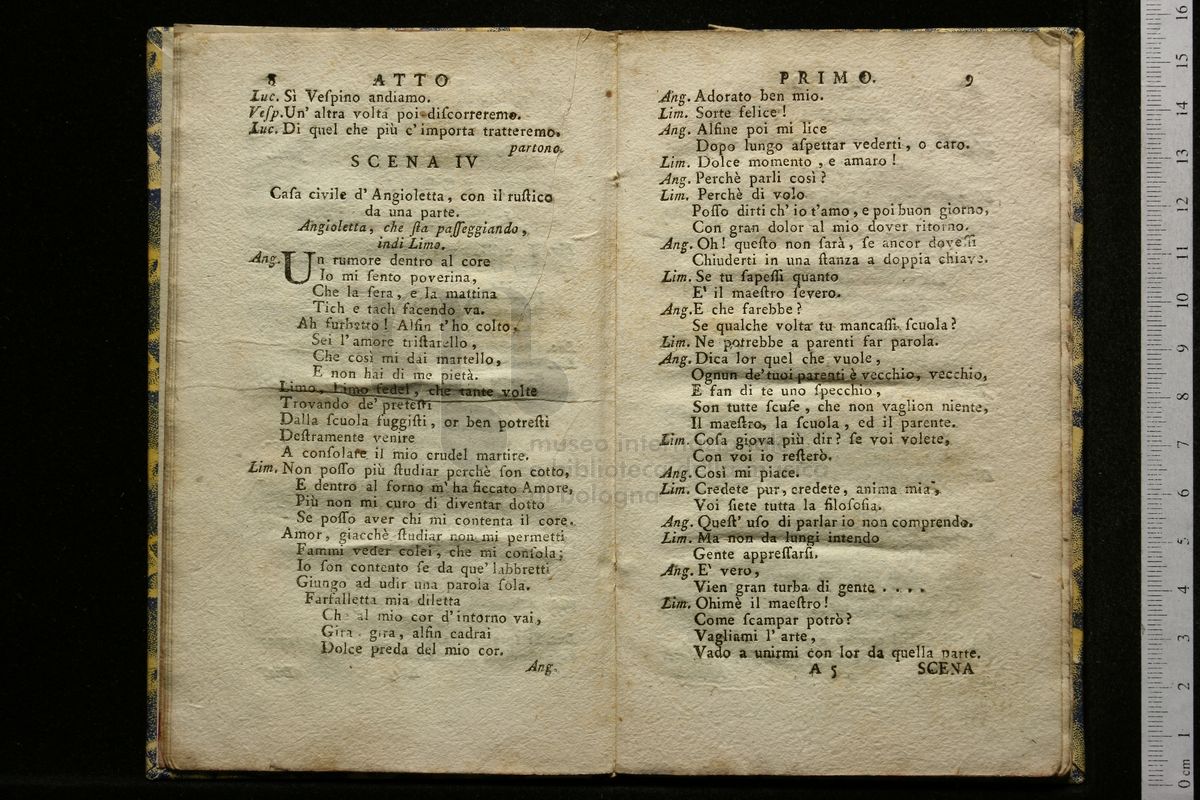 8 ATTO
Luc. Sì Veſpino andiamo.
Veſp. Un' altra volta poi diſcorreremo.
Luc. Di quel che più c' importa tratteremo.
partono.
SCENA IV
Caſa civile d' Angioletta, con il ruſtico
da una parte.
Angioletta, che ſta paſſeggiando,
indi Limo.
Ang. Un rumore dentro al core
Io mi ſento poverina,
Che la ſera, e la mattina
Tich e tach facendo va.
Ah furbetto! Alfin t' ho colto,
Sei l' amore triſtarello,
Che così mi dai martello,
E non hai di me pietà.
Limo, Limo fedel, che tante volte
Trovando de' preteſti
Dalla ſcuola fuggiſti, or ben potreſti
Deſtramente venire
A conſolare il mio crudel martire.
Lim. Non poſſo più ſtudiar perchè ſon cotto,
E dentro al forno m' ha ficcato Amore,
Più non mi curo di diventar dotto
Se poſſo aver chi mi contenta il core.
Amor, giacchè ſtudiar non mi permetti
Fammi veder colei, che mi conſola;
Io ſon contento ſe da que' labbretti
Giungo ad udir una parola ſola.
Farfalletta mia diletta
Che al mio cor d' intorno vai,
Gira gira, alfin cadrai
Dolce preda del mio cor.
Ang.
PRIMO. 9
Ang. Adorato ben mio.
Lim. Sorte felice!
Ang. Alfine poi mi lice
Dopo lungo aſpettar vederti, o caro.
Lim. Dolce momento, e amaro!
Ang. Perchè parli così?
Lim. Perchè di volo
Poſſo dirti ch' io t'amo, e poi buon giorno,
Con gran dolor al mio dover ritorno.
Ang. Oh! queſto non ſarà, ſe ancor doveſſi
Chiuderti in una ſtanza a doppia chiave.
Lim. Se tu ſapeſſi quanto
E' il maeſtro ſevero.
Ang. E che farebbe?
Se qualche volta tu mancaſſi ſcuola?
Lim. Ne potrebbe a parenti far parola.
Ang. Dica lor quel che vuole,
Ognun de' tuoi parenti è vecchio, vecchio,
E fan di te uno ſpecchio,
Son tutte ſcuſe, che non vaglion niente,
Il maeſtro, la ſcuola, ed il parente.
Lim. Coſa giova più dir? ſe voi volete,
Con voi io reſterò.
Ang. Così mi piace.
Lim. Credete pur, credete, anima mia,
Voi ſiete tutta la filoſofia.
Ang. Queſt' uſo di parlar io non comprendo.
Lim. Ma non da lungi intendo
Gente appreſſarſi.
Ang. E' vero,
Vien gran turba di gente . . . .
Lim. Ohimè il maeſtro!
Come ſcampar potrò?
Vagliami l' arte,
Vado a unirmi con lor da quella parte.
A 5 SCENA